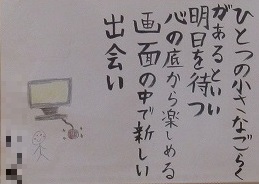 ひとつの小さなごらく
があるといい
明日を待つ
心の底から楽しめる
画面の中で新しい
出会い